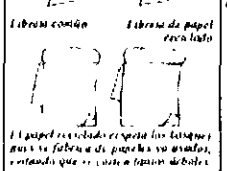 Libreta común
Libreta de papel
reciclado
El papel reciclado respeta los bosques
pues se fabrica de papeles ya usados,
evitando que se corten tantos árboles.